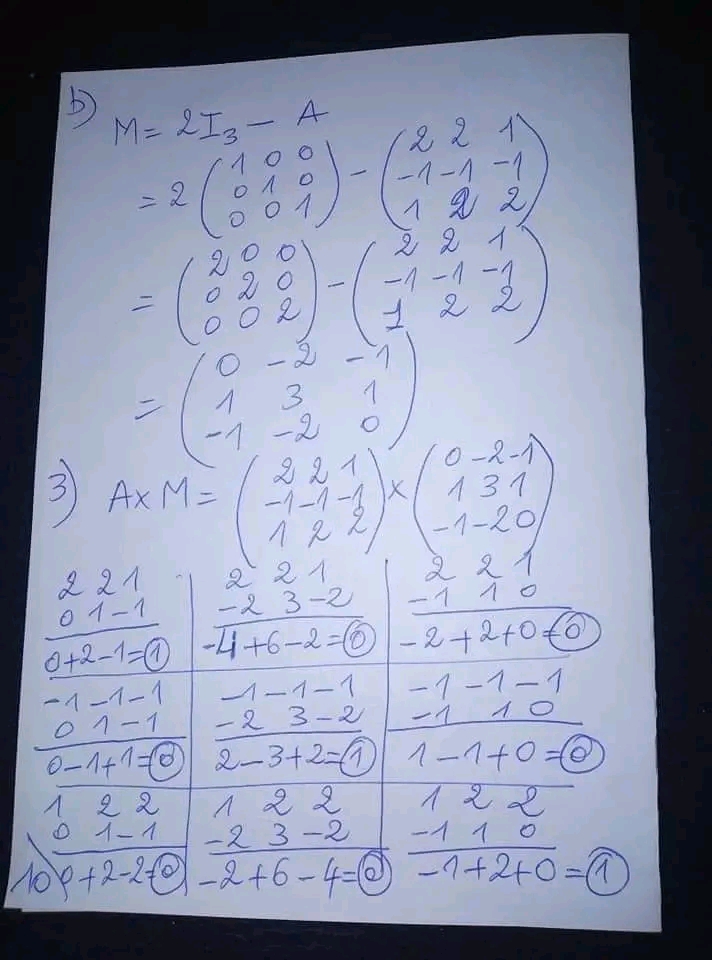 b)
M = 2I₃ − A
= 2 (1 0 0
0 1 0
0 0 1) − (2 2 1
-1 -1 -1
1 2 2)
= (2 0 0
0 2 0
0 0 2) − (2 2 1
-1 -1 -1
1 2 2)
= (0 -2 -1
1 3 1
-1 -2 0)
3) A x M = (2 2 1
-1 -1 -1
1 2 2) x (0 -2 -1
1 3 1
-1 -2 0)
2 2 1
0 1 -1
0+2-1=1
2 2 1
-2 3 -2
-4+6-2=0
2 2 1
-1 1 0
-2+2+0=0
-1 -1 -1
0 1 -1
0-1+1=0
-1 -1 -1
-2 3 -2
2-3+2=1
-1 -1 -1
-1 1 0
1-1+0=0
1 2 2
0 1 -1
0+2-2=0
1 2 2
-2 3 -2
-2+6-4=0
1 2 2
-1 1 0
-1+2+0=1
10)